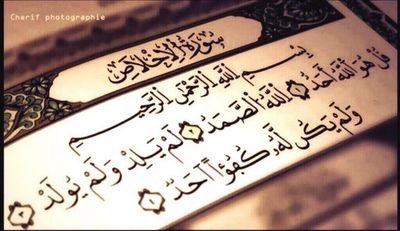 Cherif photographie
سُورَةُ الْإِخْلَاصِ
بِسْمِ اللَّهِ الرَّحْمَٰنِ الرَّحِيمِ
قُلْ هُوَ اللَّهُ أَحَدٌ ١ اللَّهُ الصَّمَدُ ٢ لَمْ يَلِدْ وَلَمْ يُولَدْ ٣
وَلَمْ يَكُن لَّهُ كُفُوًا أَحَدٌ ٤